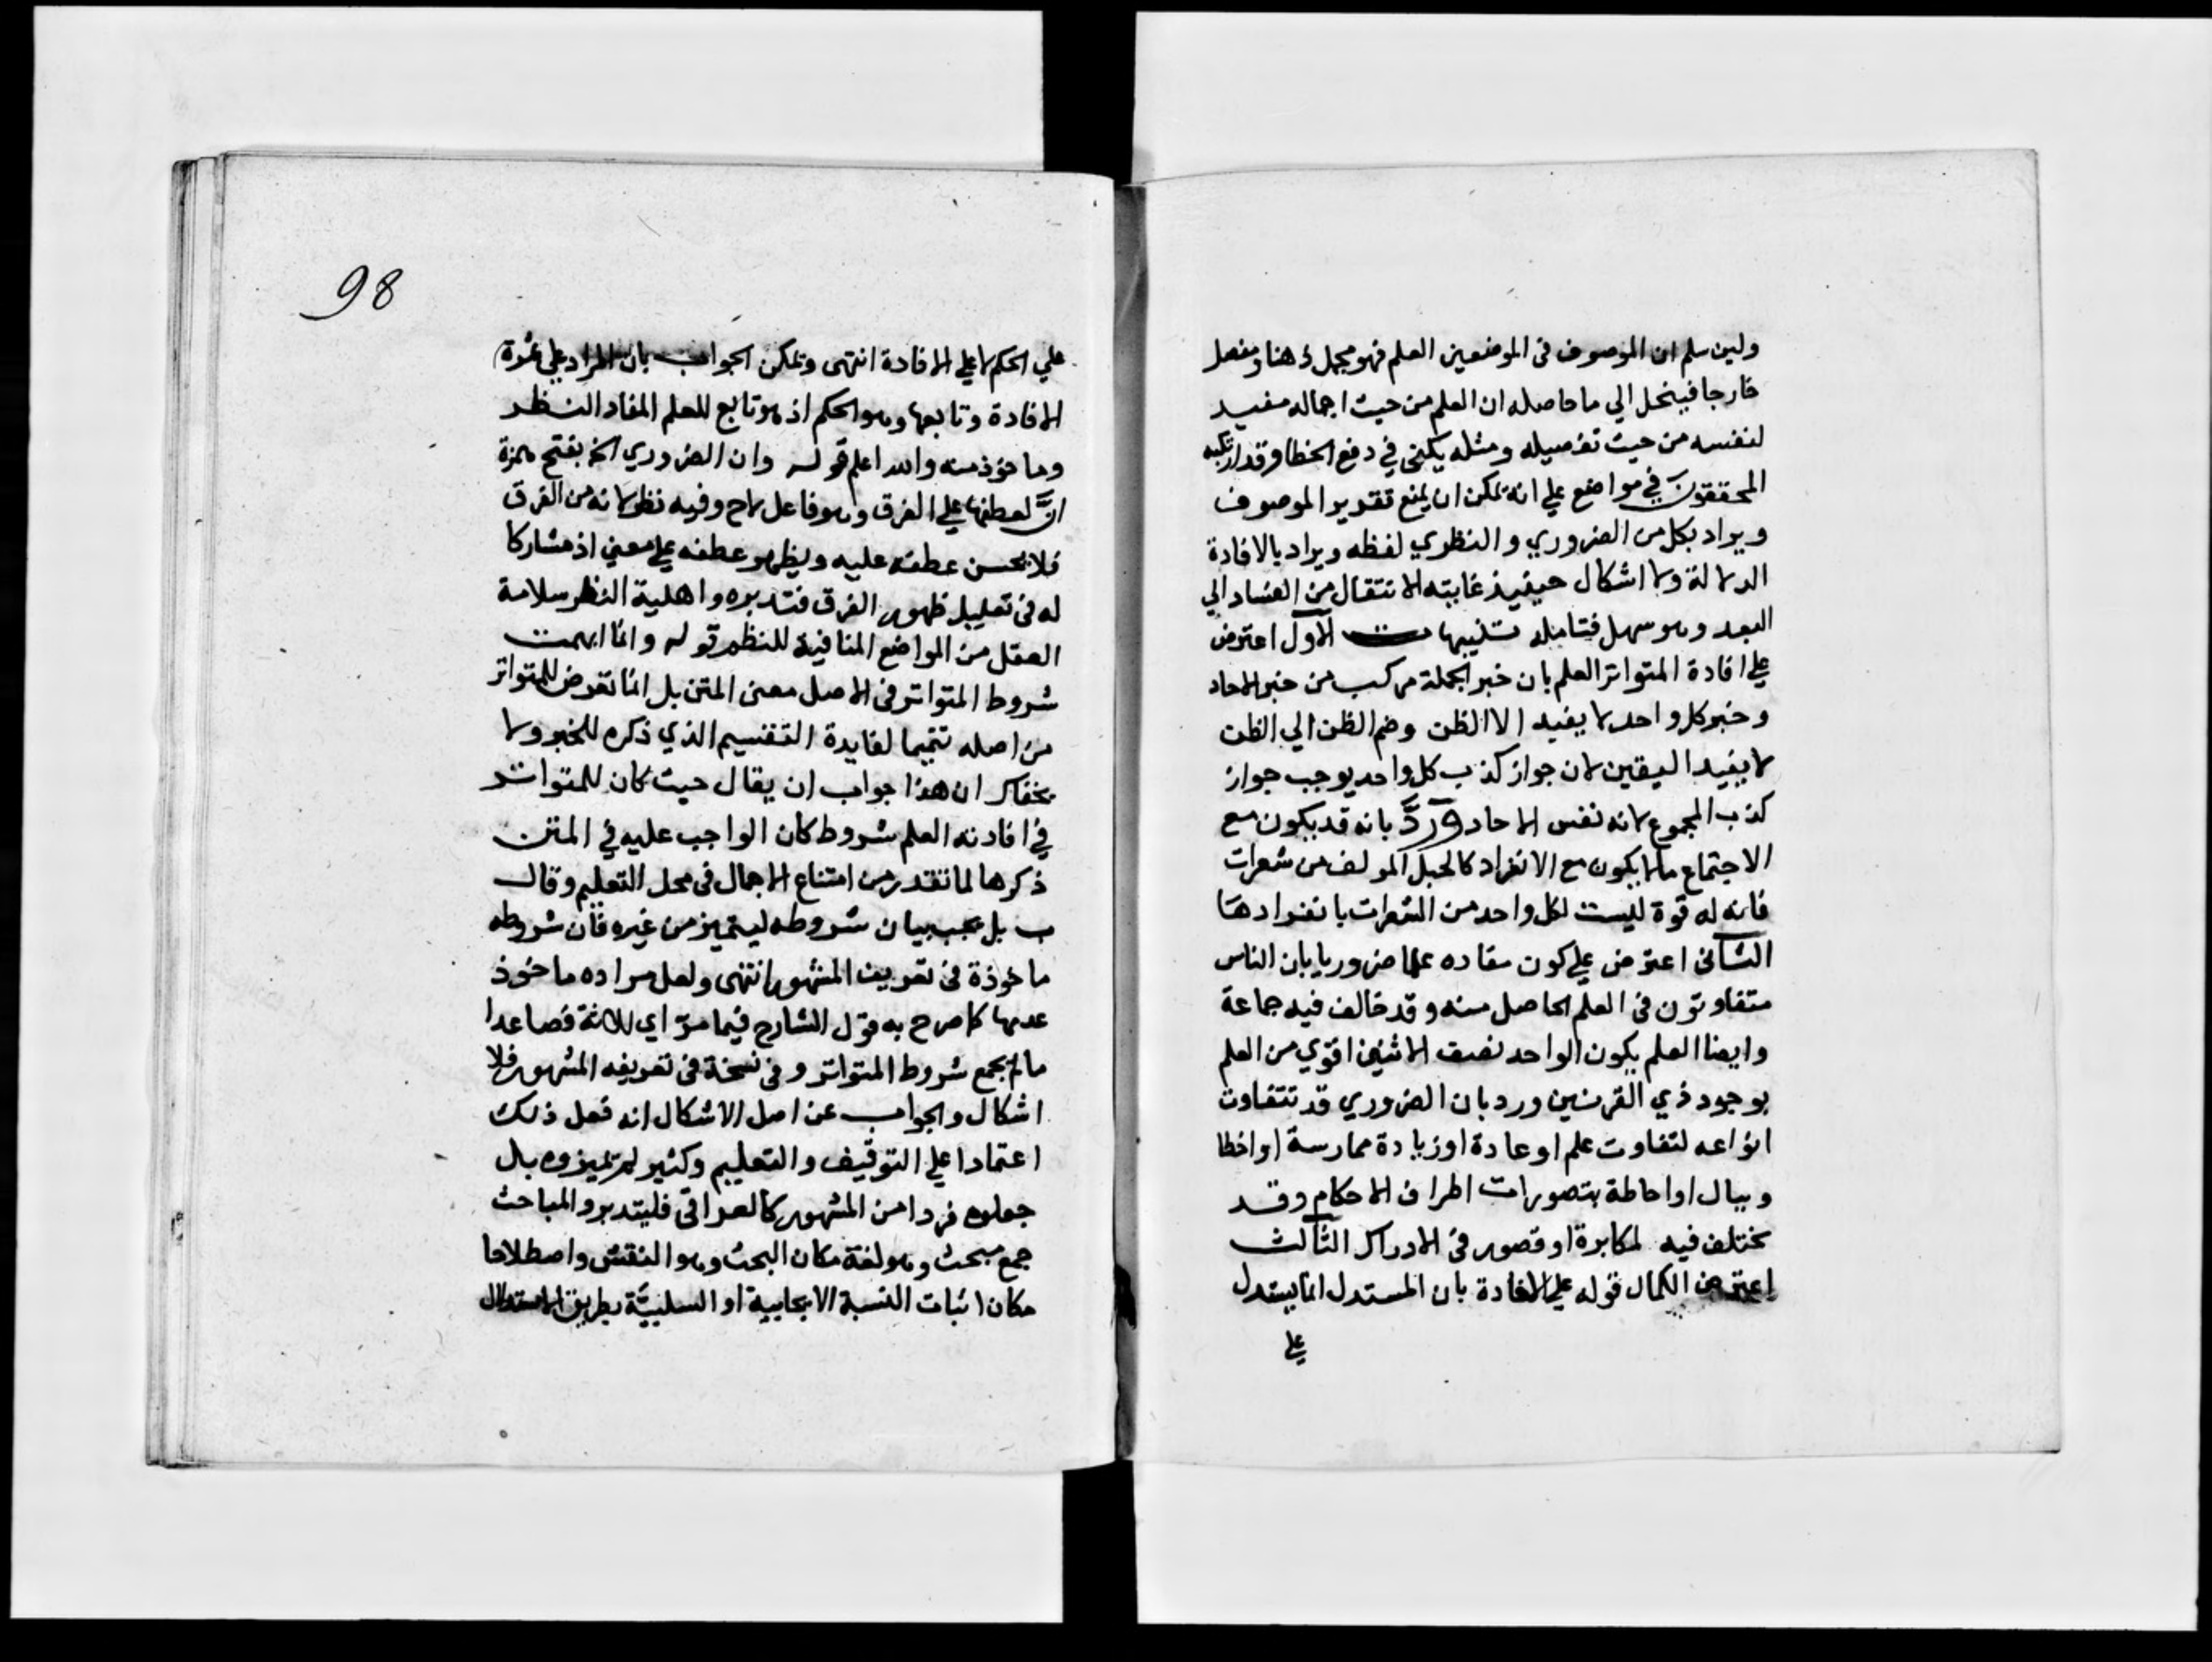 ولين سلم ان الموصوف فى الموضعين العلم فهو مجمل ذهنا ومفصل
خارجا فينحل الي ما حاصله ان العلم من حيث اجماله مفيد
لنفسه من حيث تفصيله ومثله يكفى في دفع الخطا وقد ارتكبه
المحققون في مواضع علي انه يمكن ان يمنع تقدير الموصوف
ويراد بكل من الضروري والنظري لفظه ويراد بالافادة
الدلالة ولا اشكال حينيذ غايته الانتقال من الفساد الي
البعد وهو سهل فتامله تنبيهات الاول اعترض
علي افادة المتواتر العلم بان خبر الجملة مركب من خبر الاحاد
وخبر كل واحد لا يفيد الا الظن وضم الظن الي الظن
لا يفيد اليقين لان جواز كذب كل واحد يوجب جواز
كذب المجموع لانه نفس الاحاد ورد بانه قد يكون مع
الاجتماع ما لا يكون مع الانفراد كالحبل المولف من شعرات
فانه له قوة ليست لكل واحد من الشعرات بانفرادها
الثانى اعترض علي كون مفاده علما ضروريا بان الناس
متفاوتون فى العلم الحاصل منه وقد خالف فيه جماعة
وايضا العلم بكون الواحد نصف الاثنين اقوي من العلم
بوجود ذي القرنين ورد بان الضروري قد تتفاوت
انواعه لتفاوت علم او عادة او زيادة ممارسة او اخطا
وببال او احاطة بتصورات اطراف الاحكام وقد
يختلف فيه لمكابرة او قصور فى الادراك الثالث
اعترض الكمال قوله علي الافادة بان المستدل انما يستدل
علي
98
علي الحكم لا علي الافادة انتهى ويمكن الجواب بان المراد علي ثمرة
الافادة وتابعها وهو الحكم اذ هو تابع للعلم المفاد النظر
وماخوذ منه والله اعلم قوله وان الضروري الخ بفتح همزة
انّ لعطفها علي الفرق وهو فاعل لاح وفيه نظر لانه من الفرق
فلا يحسن عطفه عليه ويظهر عطفه علي معني اذ مشاركا
له فى تعليل ظهور الفرق فتدبره واهلية النظر سلامة
العقل من المواضع المنافية للنظر قوله وانما ابهمت
شروط المتواتر فى الاصل معنى المتن بل انما تعرض للمتواتر
من اصله تتميما لفايدة التقسيم الذي ذكره للخبر ولا
يخفاك ان هذا جواب ان يقال حيث كان للمتواتر
في افادته العلم شروط كان الواجب عليه في المتن
ذكرها لما تقدر من امتناع الاجمال فى محل التعليم وقال
ب بل يجب بيان شروطه ليتميز من غيره فان شروطه
ماخوذة فى تعريف المشهور انتهى ولعل مراده ماخوذ
عدمها كما صرح به قول الشارح فيما مرّ اي لثلاثة فصاعدا
ما لم يجمع شروط المتواتر وفى نسخة فى تعريفه المشهور فلا
اشكال والجواب عن اصل الاشكال انه فعل ذلك
اعتمادا علي التوقيف والتعليم وكثير لم يميزوه بل
جعلوه فردا من المشهور كالعراقى فليتدبر والمباحث
جمع مبحث وهو لغة مكان البحث وهو النقش واصطلاحا
مكان اثبات النسبة الايجابية او السلبيّة بطريق الاستدلال